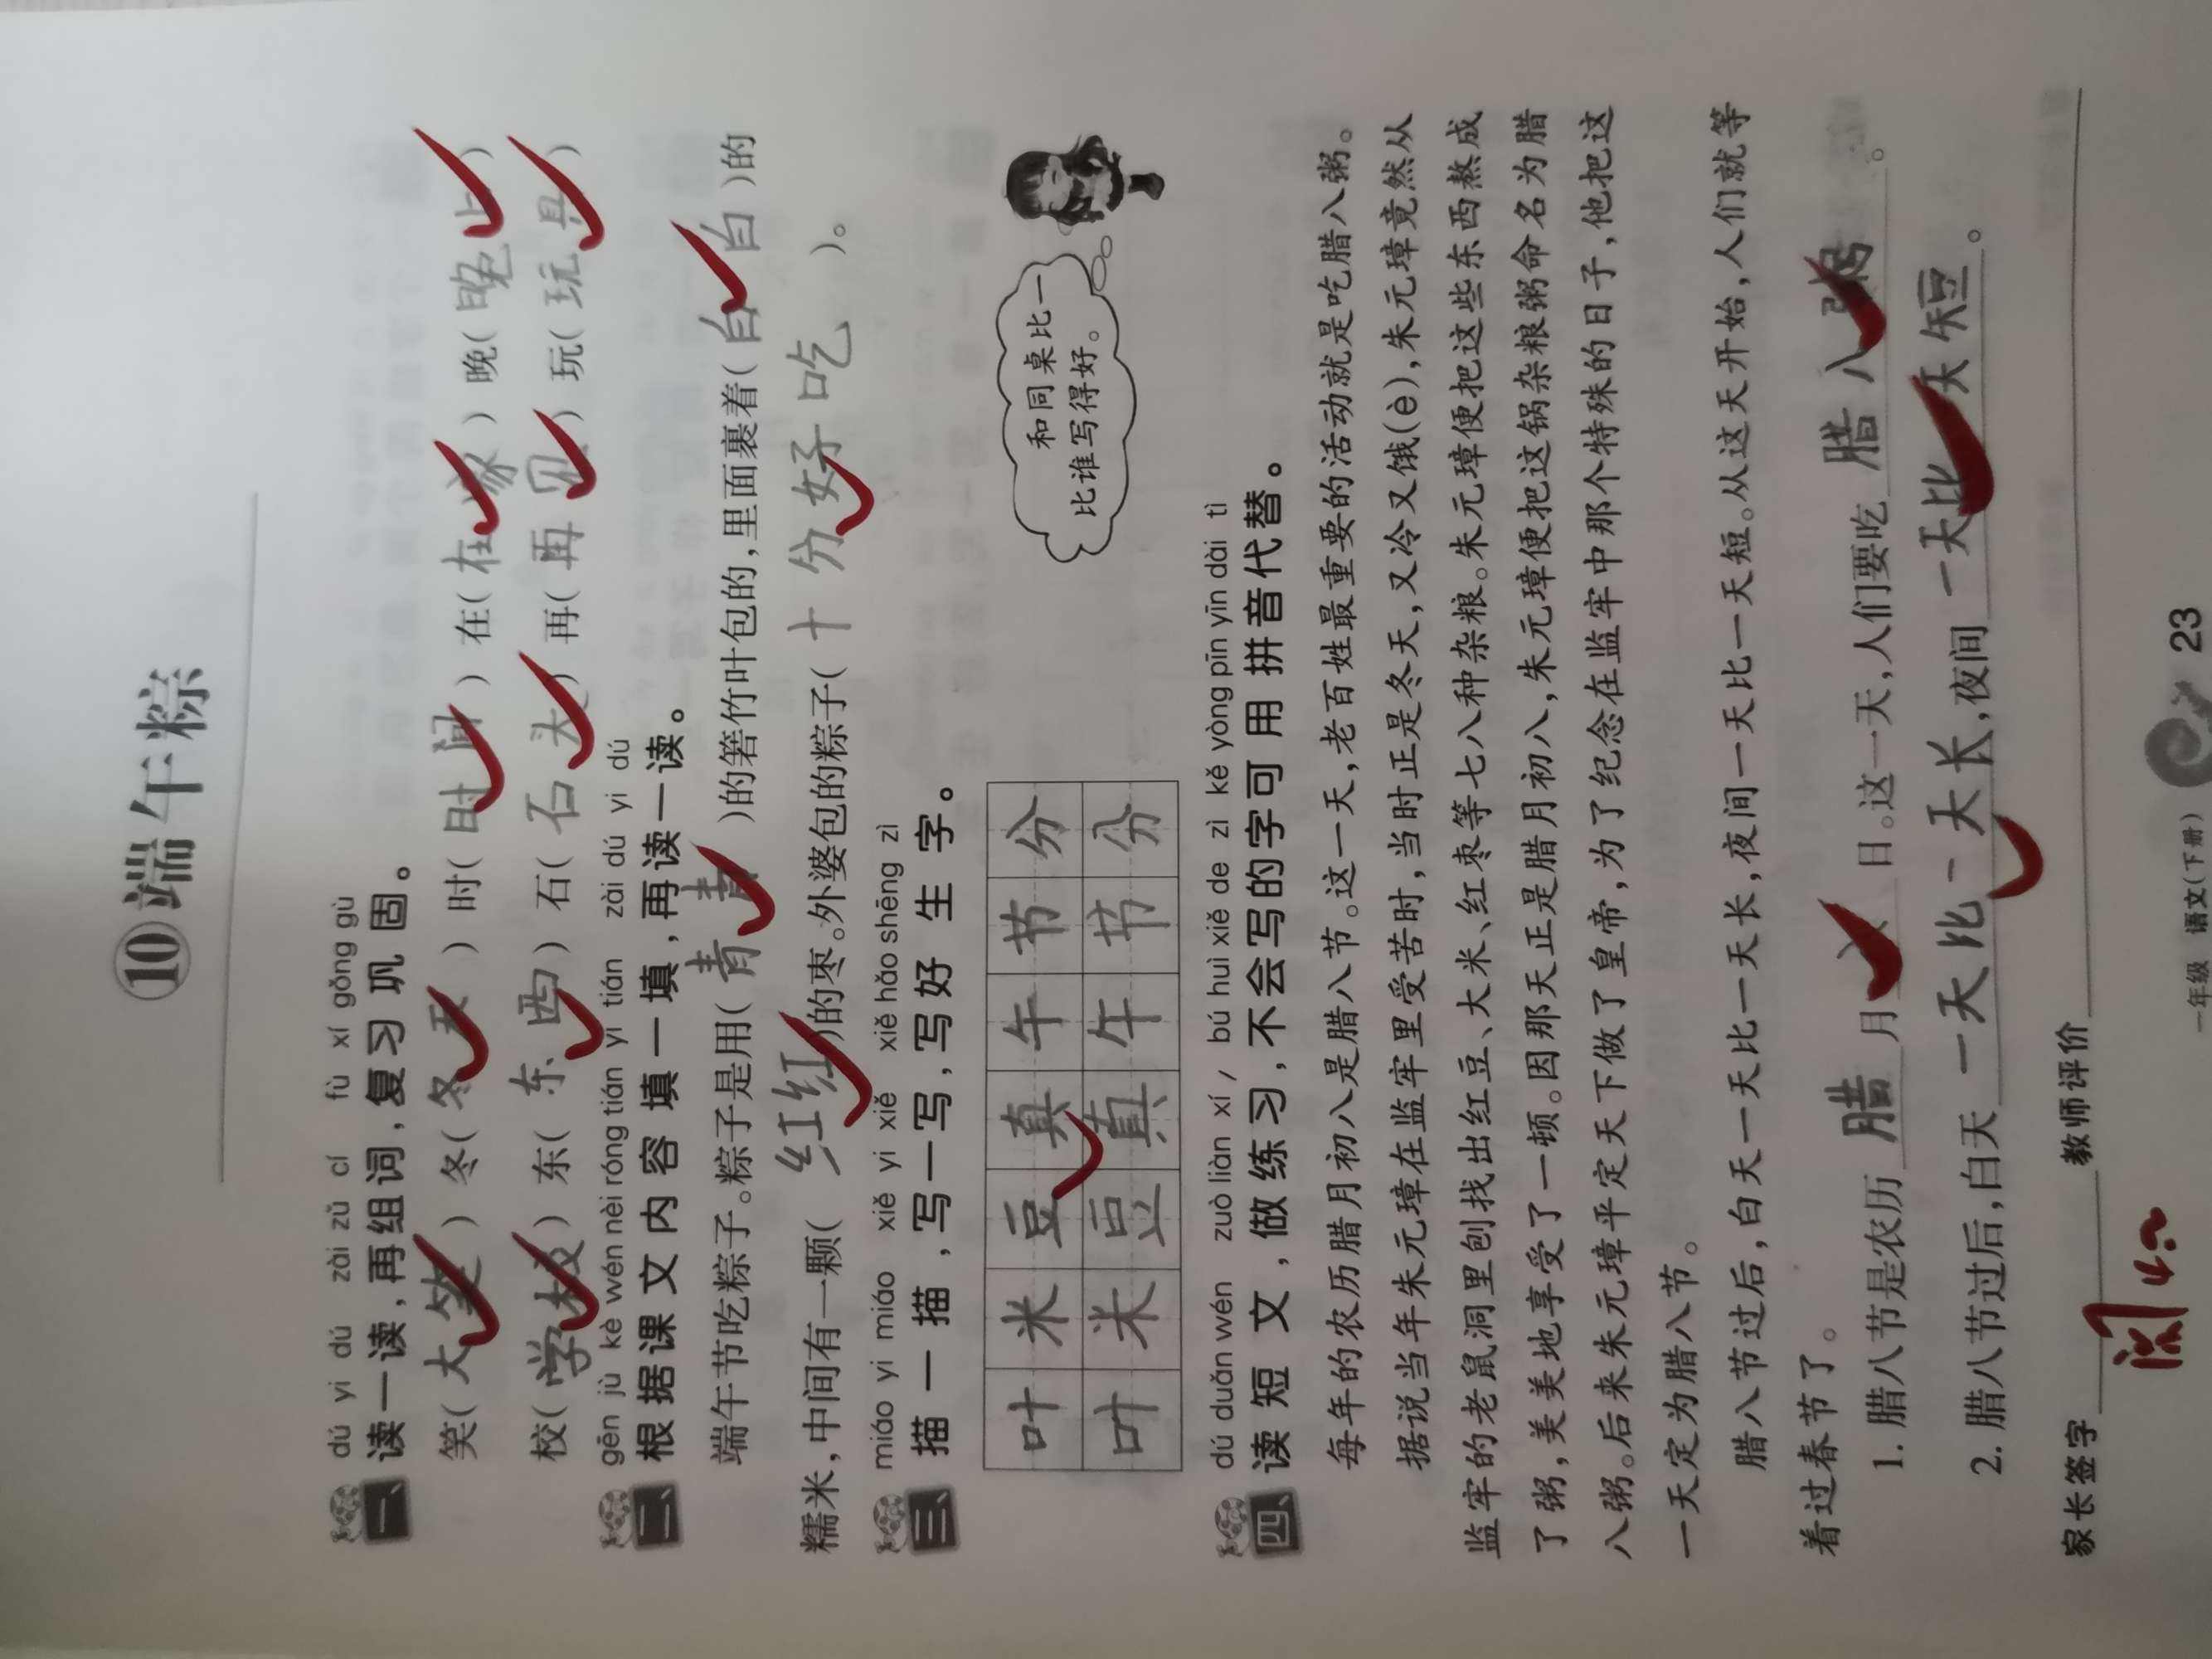 ⑩端午粽
dú yi dú zài zǔ cí fù xí gǒng gù
一、读一读,再组词,复习巩固。
笑(大笑)冬(冬天)时(时间)在(在家)晚(晚上)
校(学校)东(东西)石(石头)再(再见)玩(玩具)
gēn jù kè wén nèi róng tián yi tián zài dú yi dú
二、根据课文内容填一填,再读一读。
端午节吃粽子。粽子是用(青青)的箬竹叶包的,里面裹着(白白)的
糯米,中间有一颗(红红)的枣。外婆包的粽子(十分好吃)。
miáo yi miáo xiě yi xiě xiě hǎo shēng zì
三、描一描,写一写,写好生字。
叶米豆真午节分
叶米豆真午节分
和同桌比一
比谁写得好。
dú duǎn wén zuò liàn xí, bú huì xiě de zì kě yòng pīn yīn dài tì
四、读短文,做练习,不会写的字可用拼音代替。
每年的农历腊月初八是腊八节。这一天,老百姓最重要的活动就是吃腊八粥。
据说当年朱元璋在监牢里受苦时,当时正是冬天,又冷又饿(è),朱元璋竟然从
监牢的老鼠洞里刨找出红豆、大米、红枣等七八种杂粮。朱元璋便把这些东西熬成
了粥,美美地享受了一顿。因那天正是腊月初八,朱元璋便把这锅杂粮粥命名为腊
八粥。后来朱元璋平定天下做了皇帝,为了纪念在监牢中那个特殊的日子,他把这
一天定为腊八节。
腊八节过后,白天一天比一天长,夜间一天比一天短。从这天开始,人们就等
着过春节了。
1. 腊八节是农历腊月八日。这一天,人们要吃腊八粥。
2. 腊八节过后,白天一天比一天长,夜间一天比一天短。
家长签字 教师评价
阅
一年级 语文(下册) 23